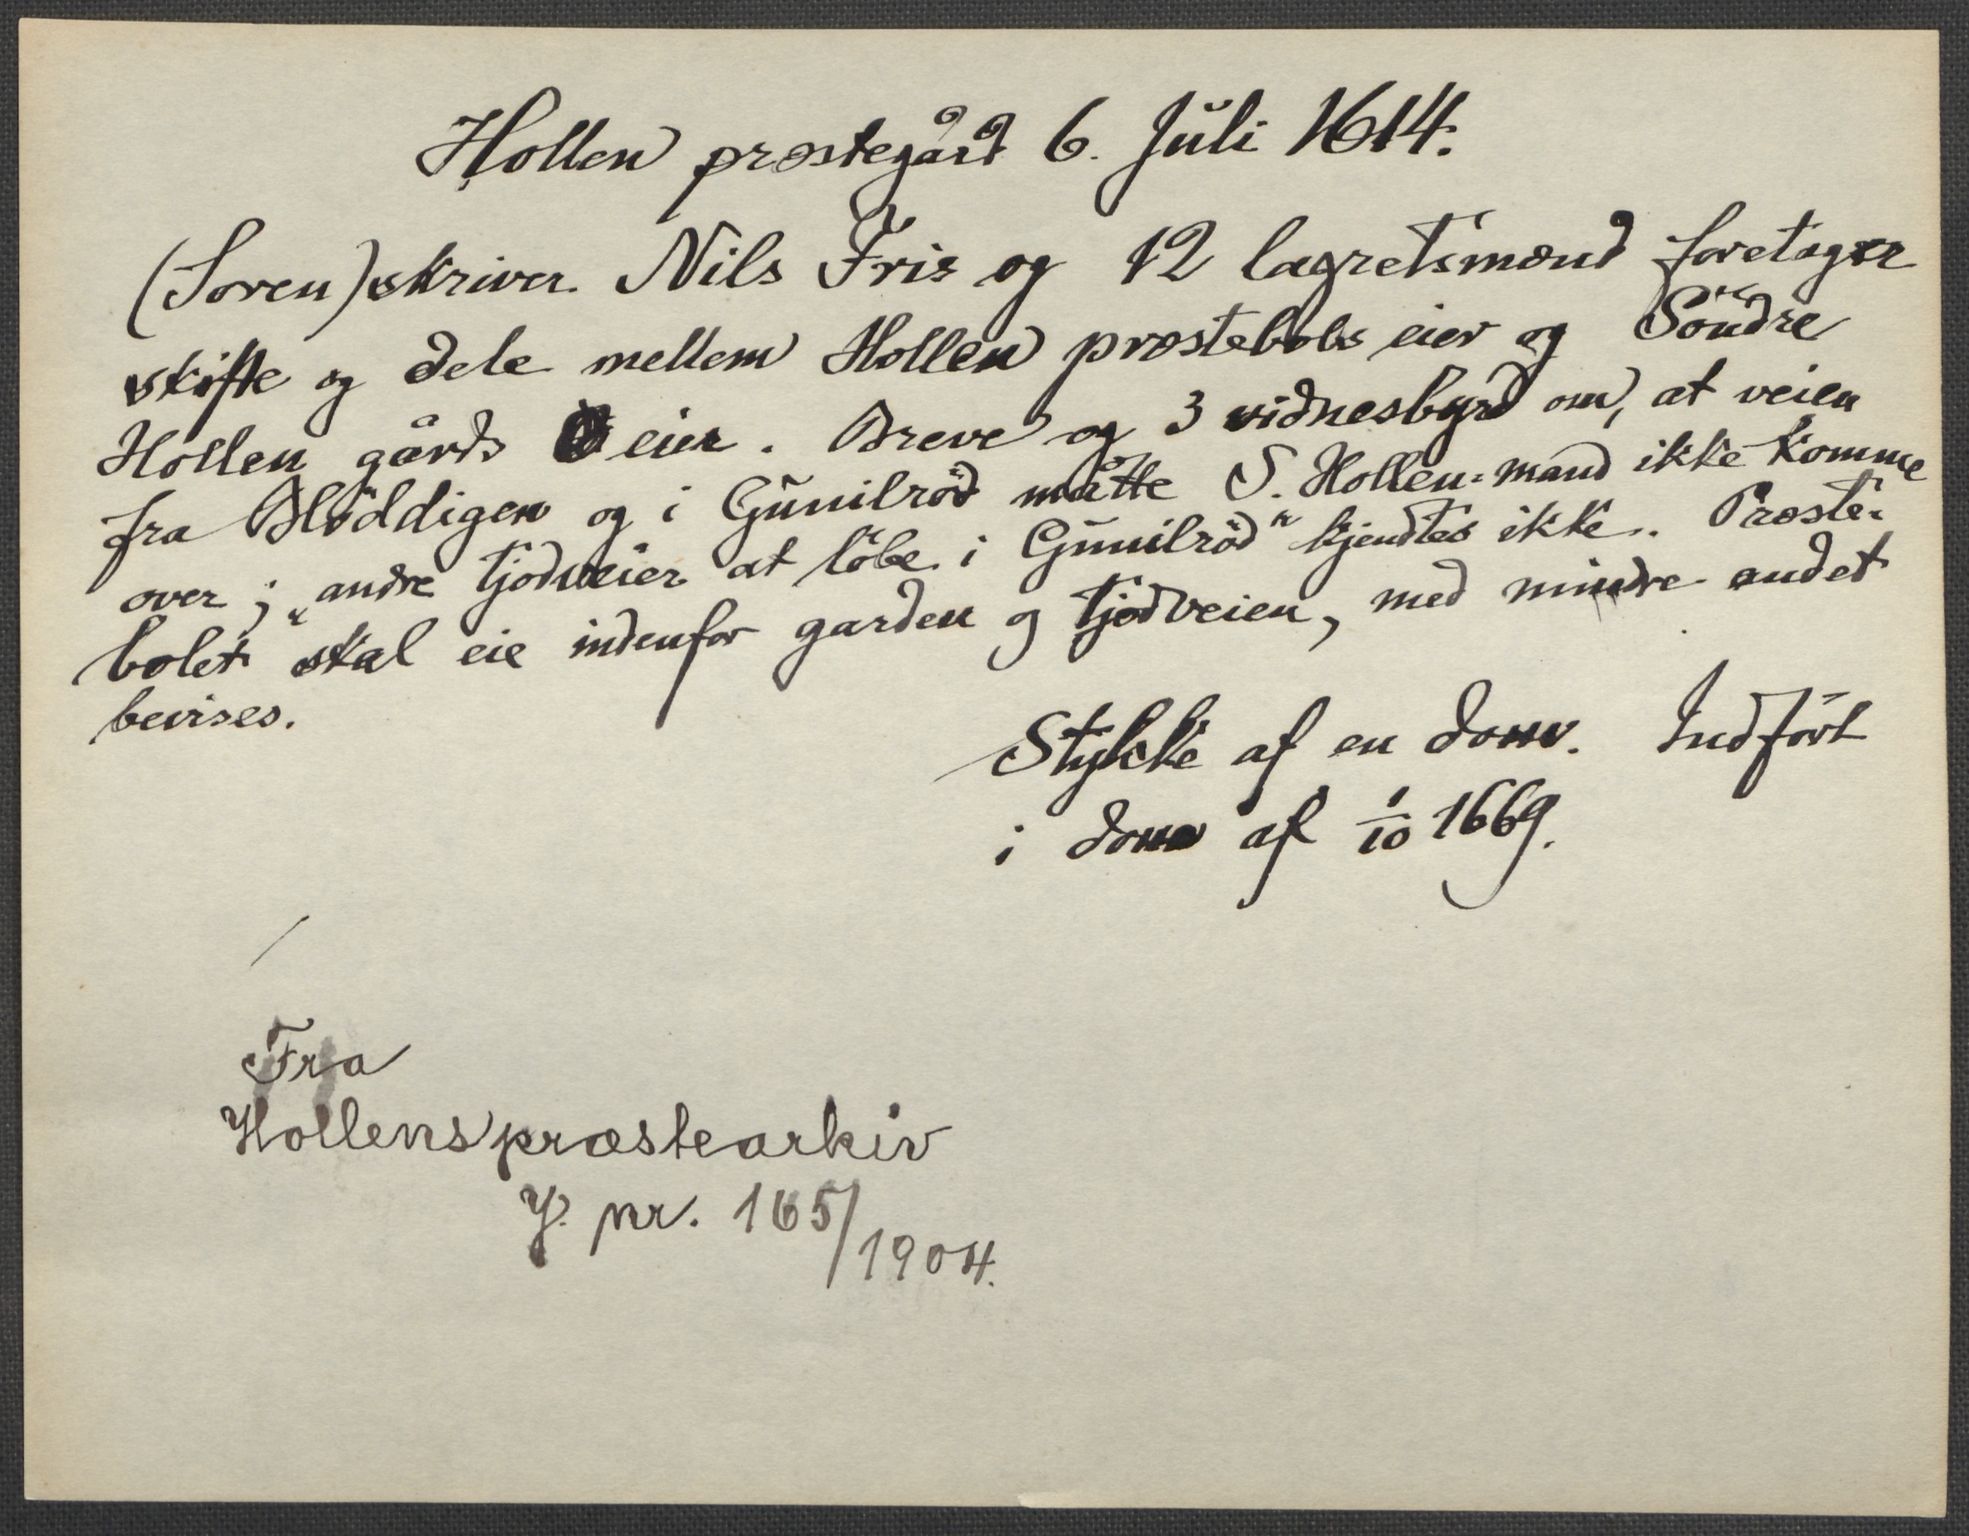 Hollen præstegård 6. Juli 1614.
(Soren)skriver Nils Friis og 12 lagretsmænd foretager
skifte og dele mellem Hollen præstebols eier og Söndre
Hollen gårds eier. Breve og 3 vidnesbyrd om, at veien
fra og i Gunilröd måtte S. Hollen-mand ikke komme
over; „andre tjodveier at löbe i Gunilröd" kjendtes ikke. Præste-
bolet skal eie indenfor garden og tjodveien, med mindre andet
bevises.
Stykke af en dom. Indfört
i dom af 1/10 1669.
Fra
Hollens præstearkiv
J. nr. 165/1904.